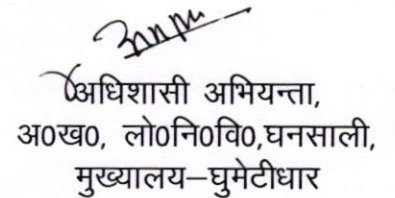 अधिशासी अभियन्ता,
अ0ख0, लो0नि0वि0,घनसाली,
मुख्यालय–घुमेटीधार